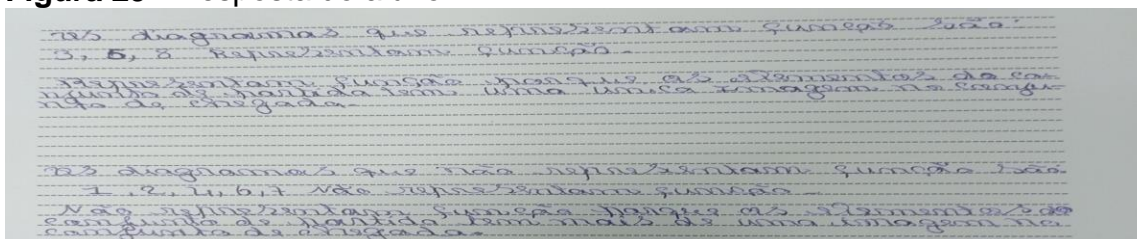 os diagramas que representam função são:
3, 5, 8 Representam função.
Representam função porque os elementos do con-
junto de partida tem uma única imagem no conju-
nto de chegada.
os diagramas que não representam função são
1, 2, 4, 6, 7 Não representam função.
Não representam função porque os elementos do
conjunto de partida tem mais de uma imagem no
conjunto de chegada.